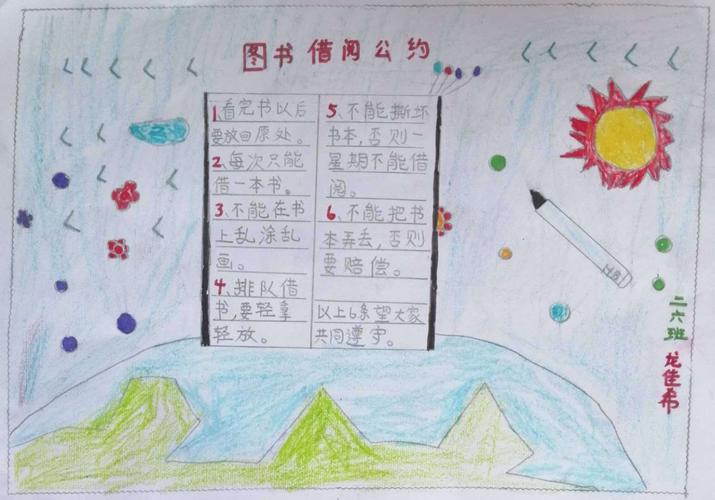 图书借阅公约
1、看完书以后
要放回原处。
2、每次只能
借一本书。
3、不能在书
上乱涂乱
画。
4、排队借
书,要轻拿
轻放。
5、不能撕坏
书本,否则一
星期不能借
阅。
6、不能把书
本弄丢,否则
要赔偿。
以上6条望大家
共同遵守。
HB
二六班
龙佳希